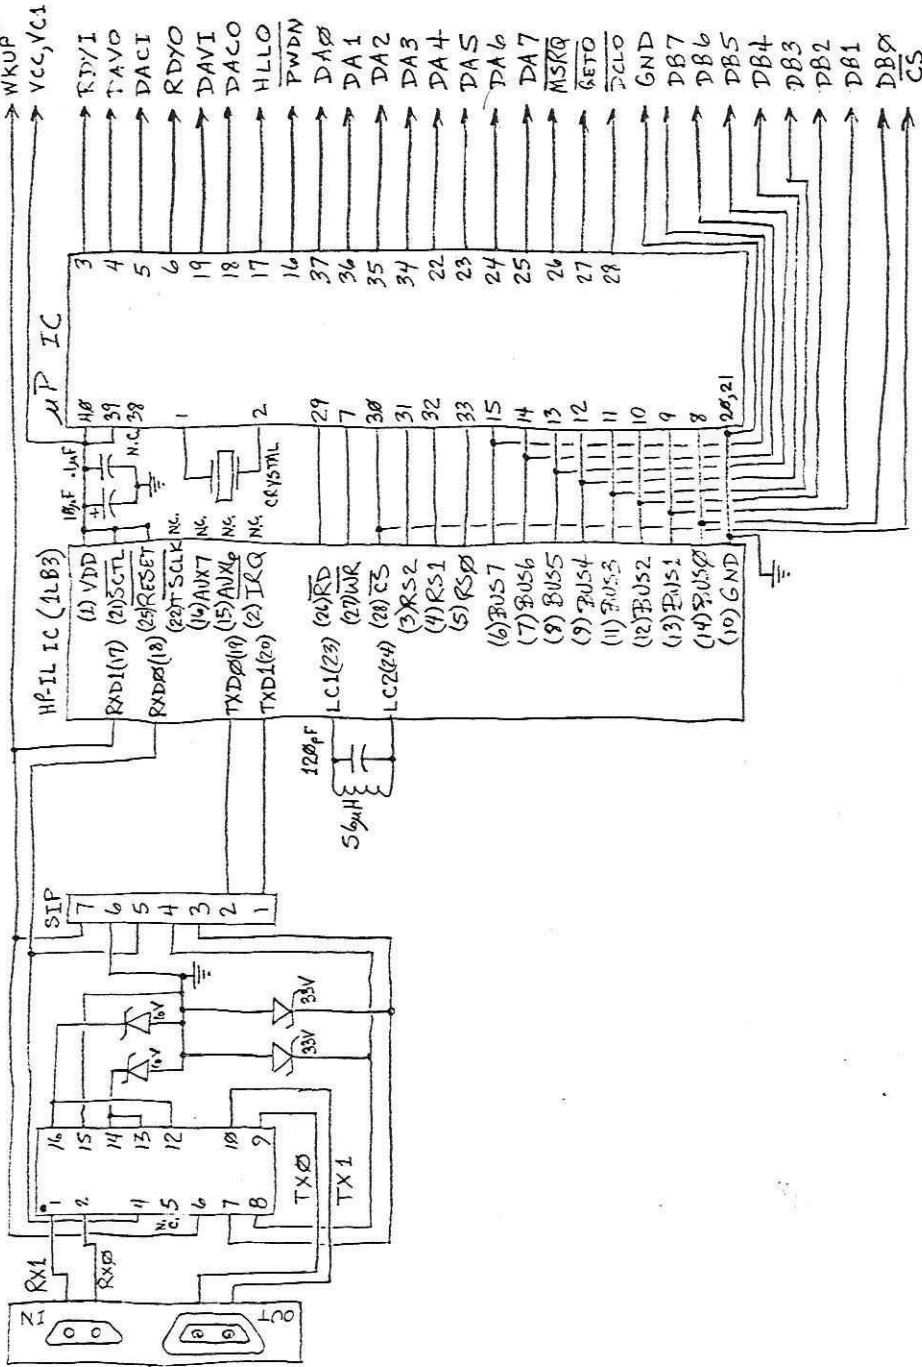 WKUP
VCC, VC1
RDYI
DACI
RDYO
DAVI
DACO
HLLO
PWDN
DAØ
DA1
DA2
DA3
DA4
DA5
DA6
DA7
MSRQ
GETO
DCLO
GND
DB7
DB6
DB5
DB4
DB3
DB2
DB1
DBØ
CS
μP IC
3
4
5
6
19
18
17
16
37
36
35
34
22
23
24
25
26
27
28
4Ø
39
38
1
2
29
7
3Ø
31
32
33
15
14
13
12
11
10
9
8
2Ø,21
.1μF
N.C.
+
CRYSTAL
N.C.
N.C.
N.C.
N.C.
HP-IL IC (1LB3)
(1) VDD
(21) SCTL
(25) RESET
(22) TSCLK
(16) AUX7
(15) AUX6
(2) IRQ
(26) RD
(27) WR
(28) CS
(3) RS2
(4) RS1
(5) RSØ
(6) BUS7
(7) BUS6
(8) BUS5
(9) BUS4
(11) BUS3
(12) BUS2
(13) BUS1
(14) BUSØ
(10) GND
RXD1(17)
RXDØ(18)
TXDØ(19)
TXD1(20)
LC1(23)
LC2(24)
12ØpF
56μH
SIP
7
6
5
4
3
2
1
33V
33V
16
15
14
13
12
1Ø
9
1
2
4
5
6
7
8
N.C.
TXØ
TX1
RX1
RXØ
IN
OUT